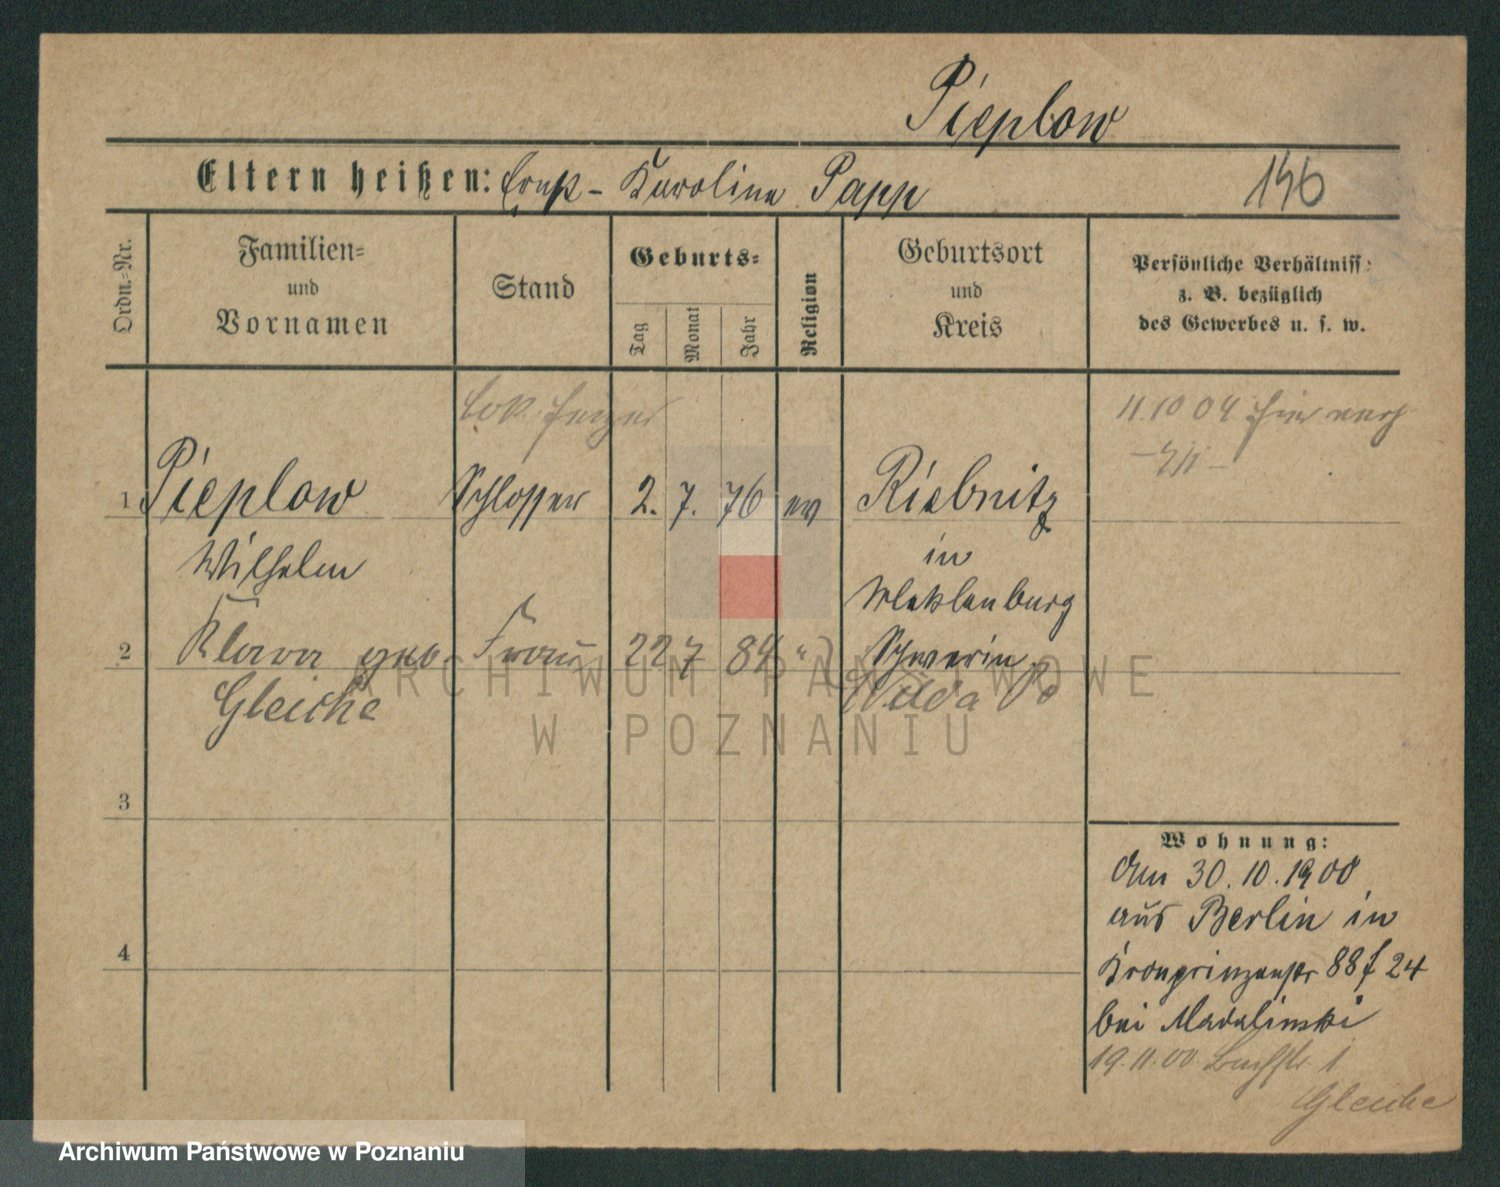 Pieplow
Eltern heißen: Ernst - Karoline Papp
146
Ordn.-Nr.
Familien-
und
Vornamen
Stand
Geburts-
Tag
Monat
Jahr
Religion
Geburtsort
und
Kreis
Persönliche Verhältniss:
z. B. bezüglich
des Gewerbes u. s. w.
Lok heizer
11.10 04
1 Pieplow Schlosser 2. 7. 76 ev Riebnitz
Wilhelm in
Meklenburg
2 Klara geb. Frau 22 7 84 " Schwerin
Gleiche Wilda Po
3
4
Wohnung:
Am 30.10.1900
aus Berlin in
Kronprinzenstr 88 f 24
bei Madalinski
19.11.00 Bachstr. 1
Gleiche
ARCHIWUM PAŃSTWOWE
W POZNANIU
Archiwum Państwowe w Poznaniu